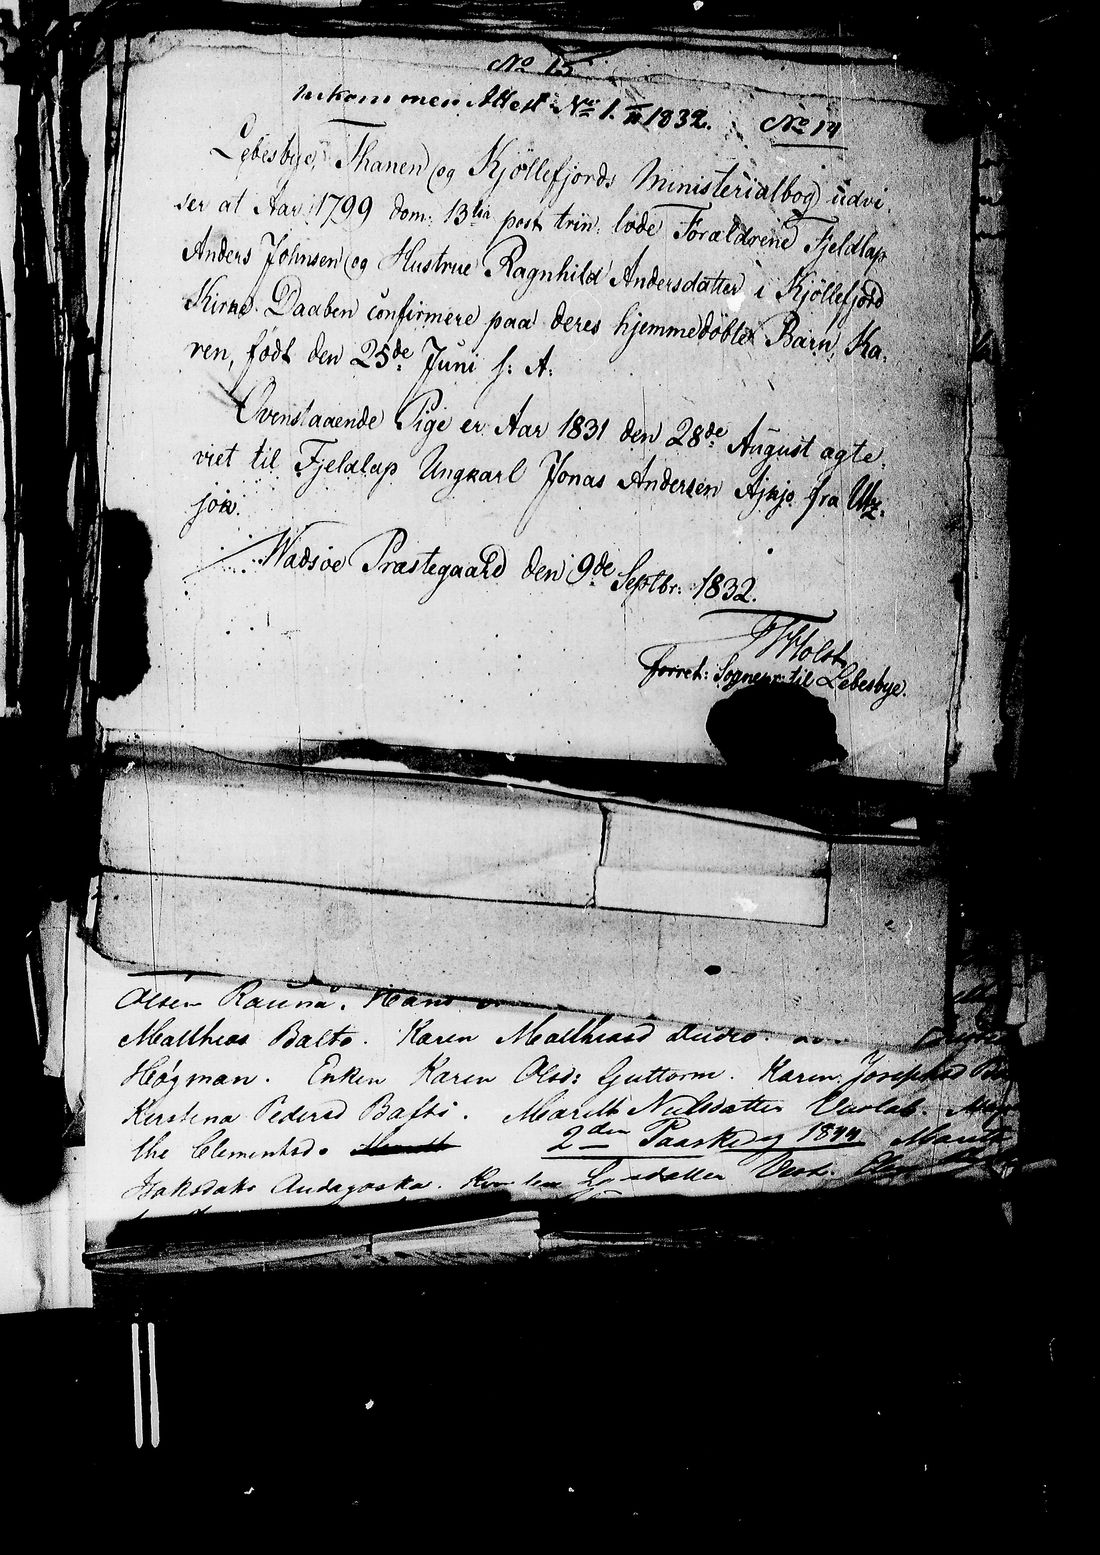 No 15
Indkommen Attest No 1. 1832. No 14
Lebesbye, Thanen og Kjöllefjords Ministerialbog udvi
ser at Aar 1799 dom: 13tia post trin: lode Forældrene Fjeldlap
Anders Johnsen og Hustrue Ragnhild Andersdatter i Kjöllefjord
Kirke Daaben confirmere paa deres hjemmedöbte Barn, Ka
ren, födt den 25de Juni s: A:
Ovenstaaende Pige er Aar 1831 den 28de August ægte
viet til Fjeldlap Ungkarl Jonas Andersen fra Utz
jok.
Wadsöe Præstegaard den 9de Septbr: 1832.
Holst
Sognepr: til Lebesbye.
Olsen Rauna. Hans
Matthias Balto. Karen Matthisd
Högman. Enken Karen Olsd: Guttorm. Karen Josephsd
Kirstena Pedersd Balto. Marith Nilsdatter
the Clementsd. 2den Paaskedag 1844 Marith